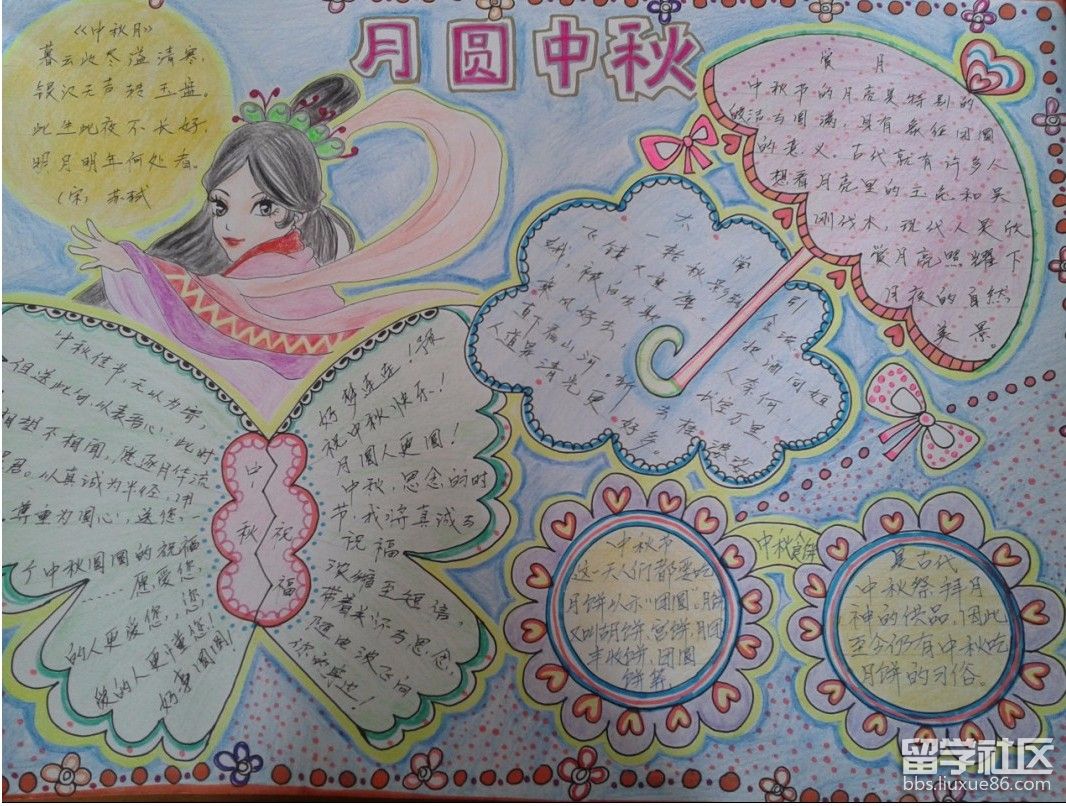 月圆中秋
《中秋月》
暮云收尽溢清寒,
银汉无声转玉盘。
此生此夜不长好,
明月明年何处看。
(宋) 苏轼
赏月
中秋节的月亮是特别的
皎洁与圆满,具有象征团圆
的意义。古代就有许多人
想看月亮里的玉兔和吴
刚伐木,现代人是欣
赏月亮照耀下
月夜的自然
美景。
一轮秋影
飞镜又重磨。
被白发
人奈何
长空万里,
直下看山河。
人道是
清光更
中秋佳节,无以为寄,
但送此句,以表吾心:此时
相望不相闻,愿逐月华流
君。以真诚为半径,用
尊重为圆心,送您
个中秋圆圆的祝福
愿爱您
的人更爱您,您
的人更懂您!
好事圆圆!
好梦连连!
祝中秋快乐!
月圆人更圆!
中秋,思念的时
节,我将真诚的
祝福
浓缩至短信,
带着关怀与思念
随电波飞向
你的身边!
中秋
祝福
中秋节
这一天人们都要吃
月饼以示“团圆”。月饼
又叫胡饼、宫饼、月团
丰收饼、团圆
饼等
中秋食俗
是古代
中秋祭拜月
神的供品,因此
至今仍有中秋吃
月饼的习俗。
留学社区
bbs.liuxue86.com